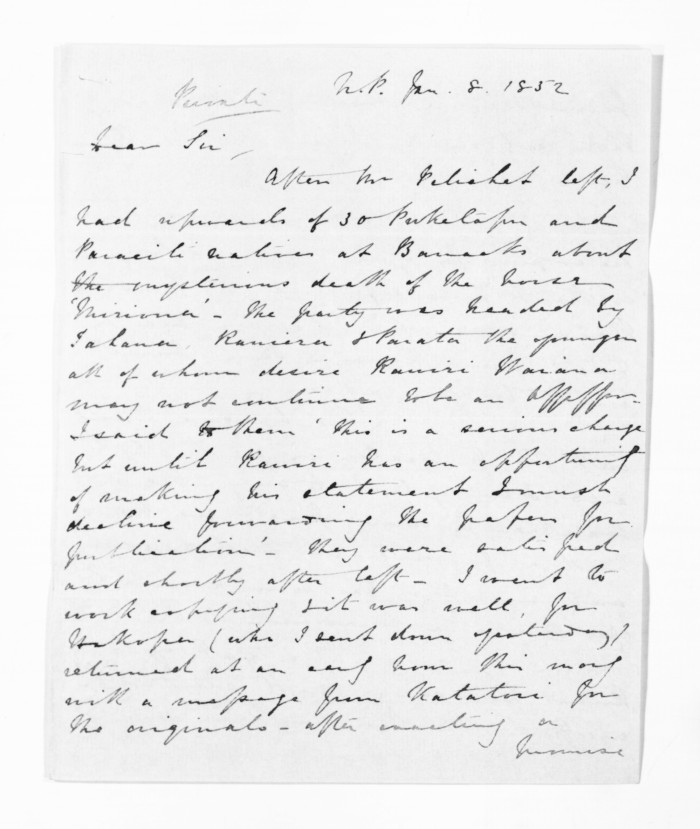 Private
N.P. Jan. 8. 1852
Dear Sir,
After Mr Pelichet left, I
had upwards of 30 Puketapu and
natives at Barracks about
the mysterious death of the horse
'Niriona' - the party was headed by
Tahana, Raniera & Parata the younger
all of whom desire Raniri Waiana
may not continue to be an Assessor.
I said to them 'this is a serious charge
but until Raniri has an opportunity
of making his statement I must
decline forwarding the papers for
publication' - they were satisfied
and shortly after left - I went to
work copying & it was well, for
(who I sent down yesterday)
returned at an early hour this morng
with a message from Katatori for
the originals - after exacting a
promise